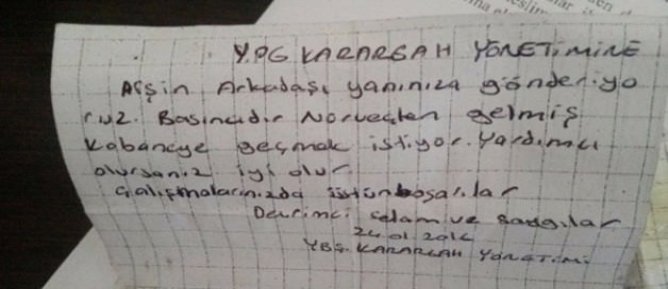 Y.PG KARARGAH YÖNETİMİNE
Afşin Arkadaşı yanınıza gönderiyo
ruz. Basıncıdır Norveçten gelmiş
Kobaneye geçmak istiyor. Yardımcı
olursanız iyi olur
Çalışmalarınızda üstünboşarılar
Devrimci selam ve saygılar
YBŞ. KARARGAH YÖNETİMİ